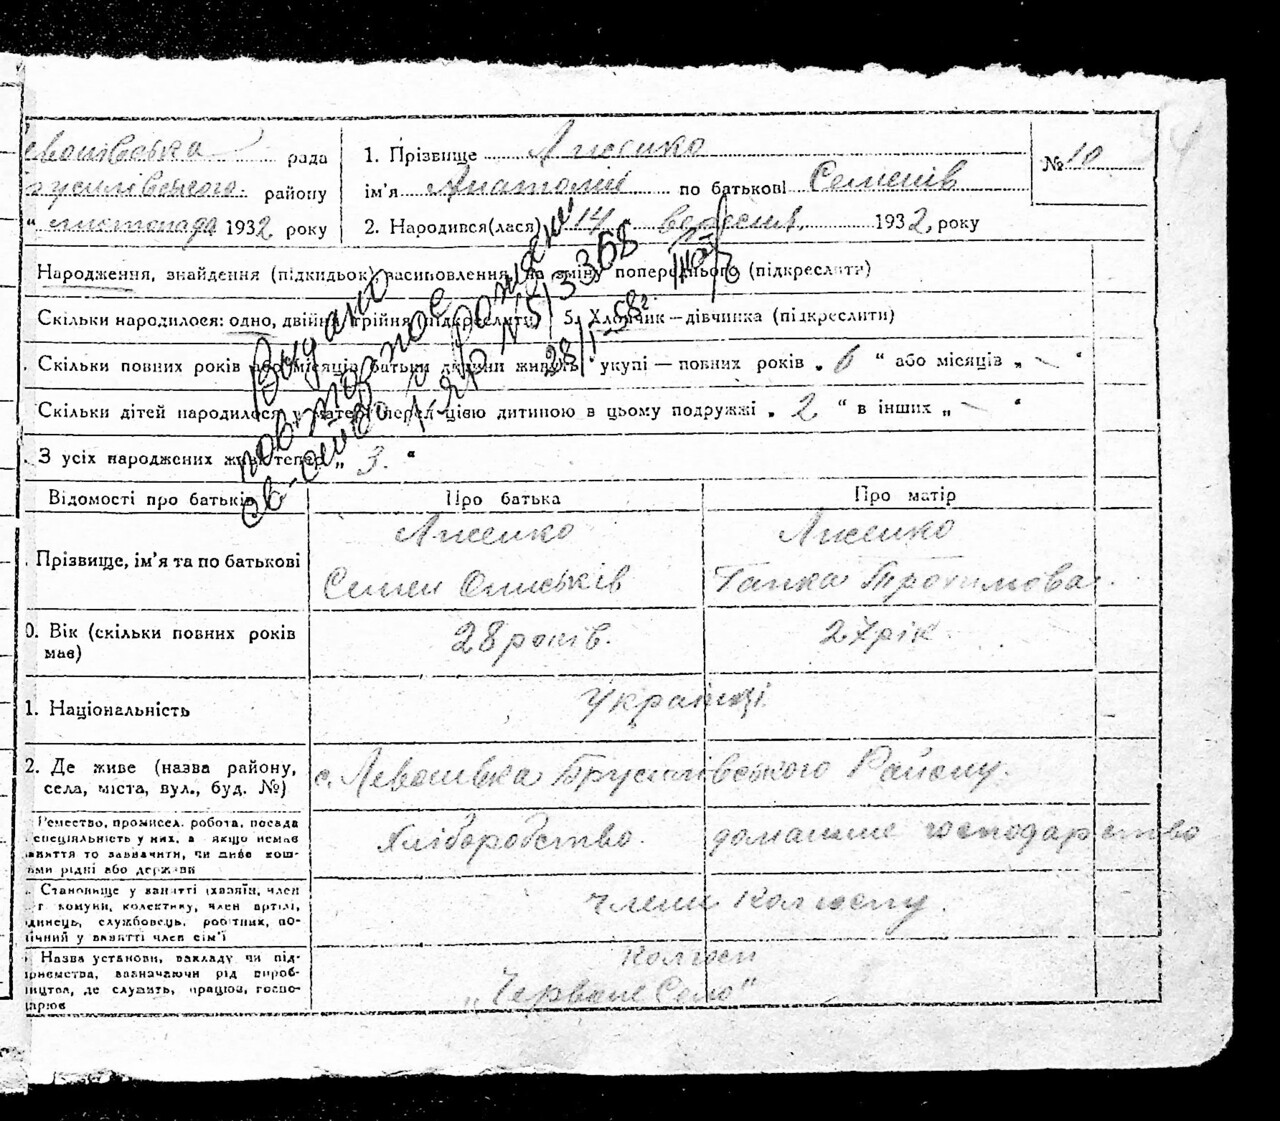 рада
району
" листопада 1932 року
1. Прізвище
ім'я Анатолій по батькові Семенів
2. Народився(лася) 14 вересня 1932 року
№ 10
Народження, знайдення (підкидьок) засиновлення, на зміну попереднього (підкреслити)
Скільки народилося: одно, двійня, трійня (підкреслити) 5. Хлопчик — дівчинка (підкреслити)
Скільки повних років або місяців батьки дитини живуть укупі — повних років „ 6 " або місяців „ — "
Скільки дітей народилося у матері перед цією дитиною в цьому подружжі „ 2 " в інших „ — "
З усіх народжених живі тепер „ 3. "
Видано
повторное
св-ство о рождении
I-ЯР № 513368
28/I-58г
Відомості про батьків Про батька Про матір
Прізвище, ім'я та по батькові
Семен Ганка Трохимова
0. Вік (скільки повних років має) 28 років. 27 рік
1. Національність Українці
2. Де живе (назва району, села, міста, вул., буд. №) с. Левошвка Брусилівського Району.
Ремество, промисел, робота, посада
спеціяльність у них, а якщо немає
заняття то зазначити, чи живе кош-
тами рідні або держави
Хліборобство. домашнє господарство
Становище у занятті (хазяїн, член
комуни, колективу, член артілі,
одинець, службовець, робітник, по-
мічний у занятті член сім'ї
члени Колгоспу.
Назва установи, закладу чи під-
приємства, зазначаючи рід вироб-
ництва, де служить, працює, госпо-
дарює
Колгосп
„Червоне Село"